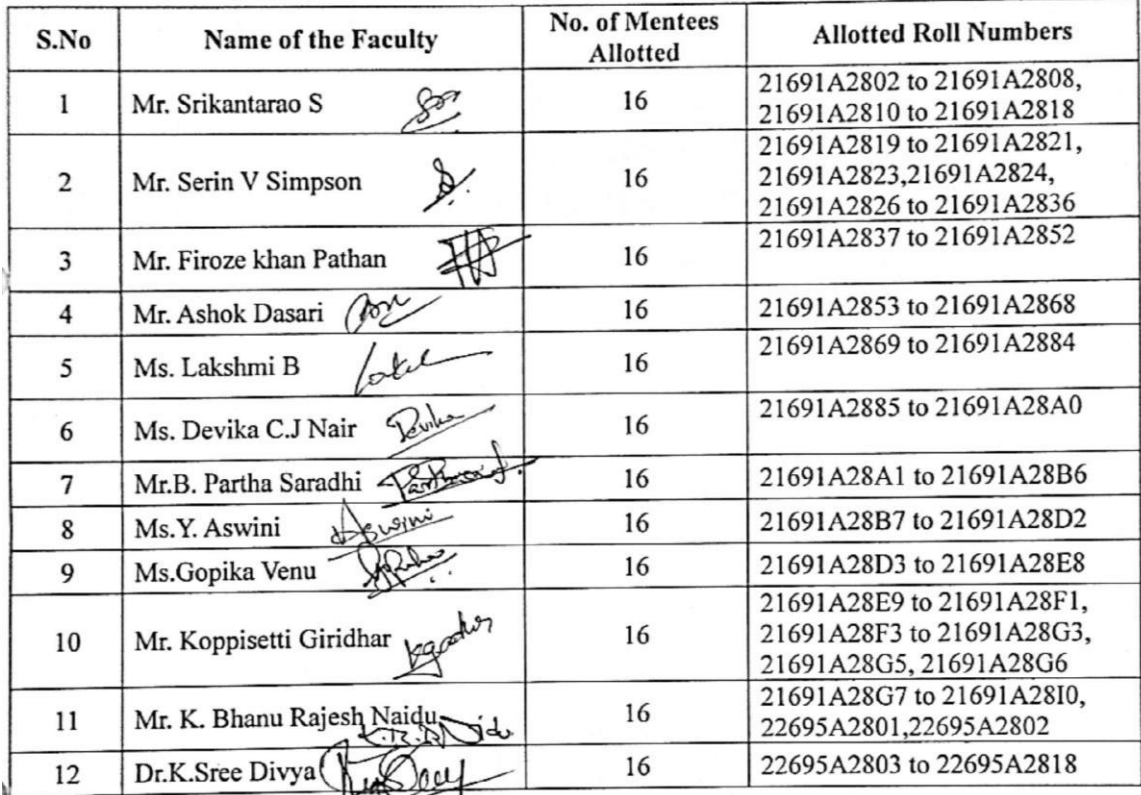 S.No Name of the Faculty No. of Mentees Allotted Allotted Roll Numbers
1 Mr. Srikantarao S 16 21691A2802 to 21691A2808,
21691A2810 to 21691A2818
2 Mr. Serin V Simpson 16 21691A2819 to 21691A2821,
21691A2823,21691A2824,
21691A2826 to 21691A2836
3 Mr. Firoze khan Pathan 16 21691A2837 to 21691A2852
4 Mr. Ashok Dasari 16 21691A2853 to 21691A2868
5 Ms. Lakshmi B 16 21691A2869 to 21691A2884
6 Ms. Devika C.J Nair Devika 16 21691A2885 to 21691A28A0
7 Mr.B. Partha Saradhi 16 21691A28A1 to 21691A28B6
8 Ms.Y. Aswini Aswini 16 21691A28B7 to 21691A28D2
9 Ms.Gopika Venu 16 21691A28D3 to 21691A28E8
10 Mr. Koppisetti Giridhar 16 21691A28E9 to 21691A28F1,
21691A28F3 to 21691A28G3,
21691A28G5, 21691A28G6
11 Mr. K. Bhanu Rajesh Naidu 16 21691A28G7 to 21691A28I0,
K.B.R. Naidu 22695A2801,22695A2802
12 Dr.K.Sree Divya 16 22695A2803 to 22695A2818